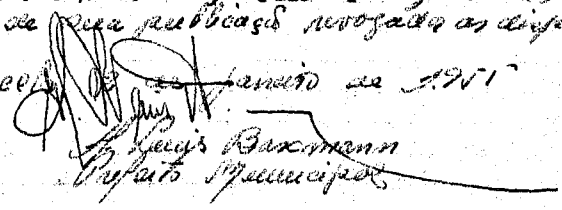 de sua publicação revogada as disp
de janeiro de 1951
Luis Baxmann
Prefeito Municipal